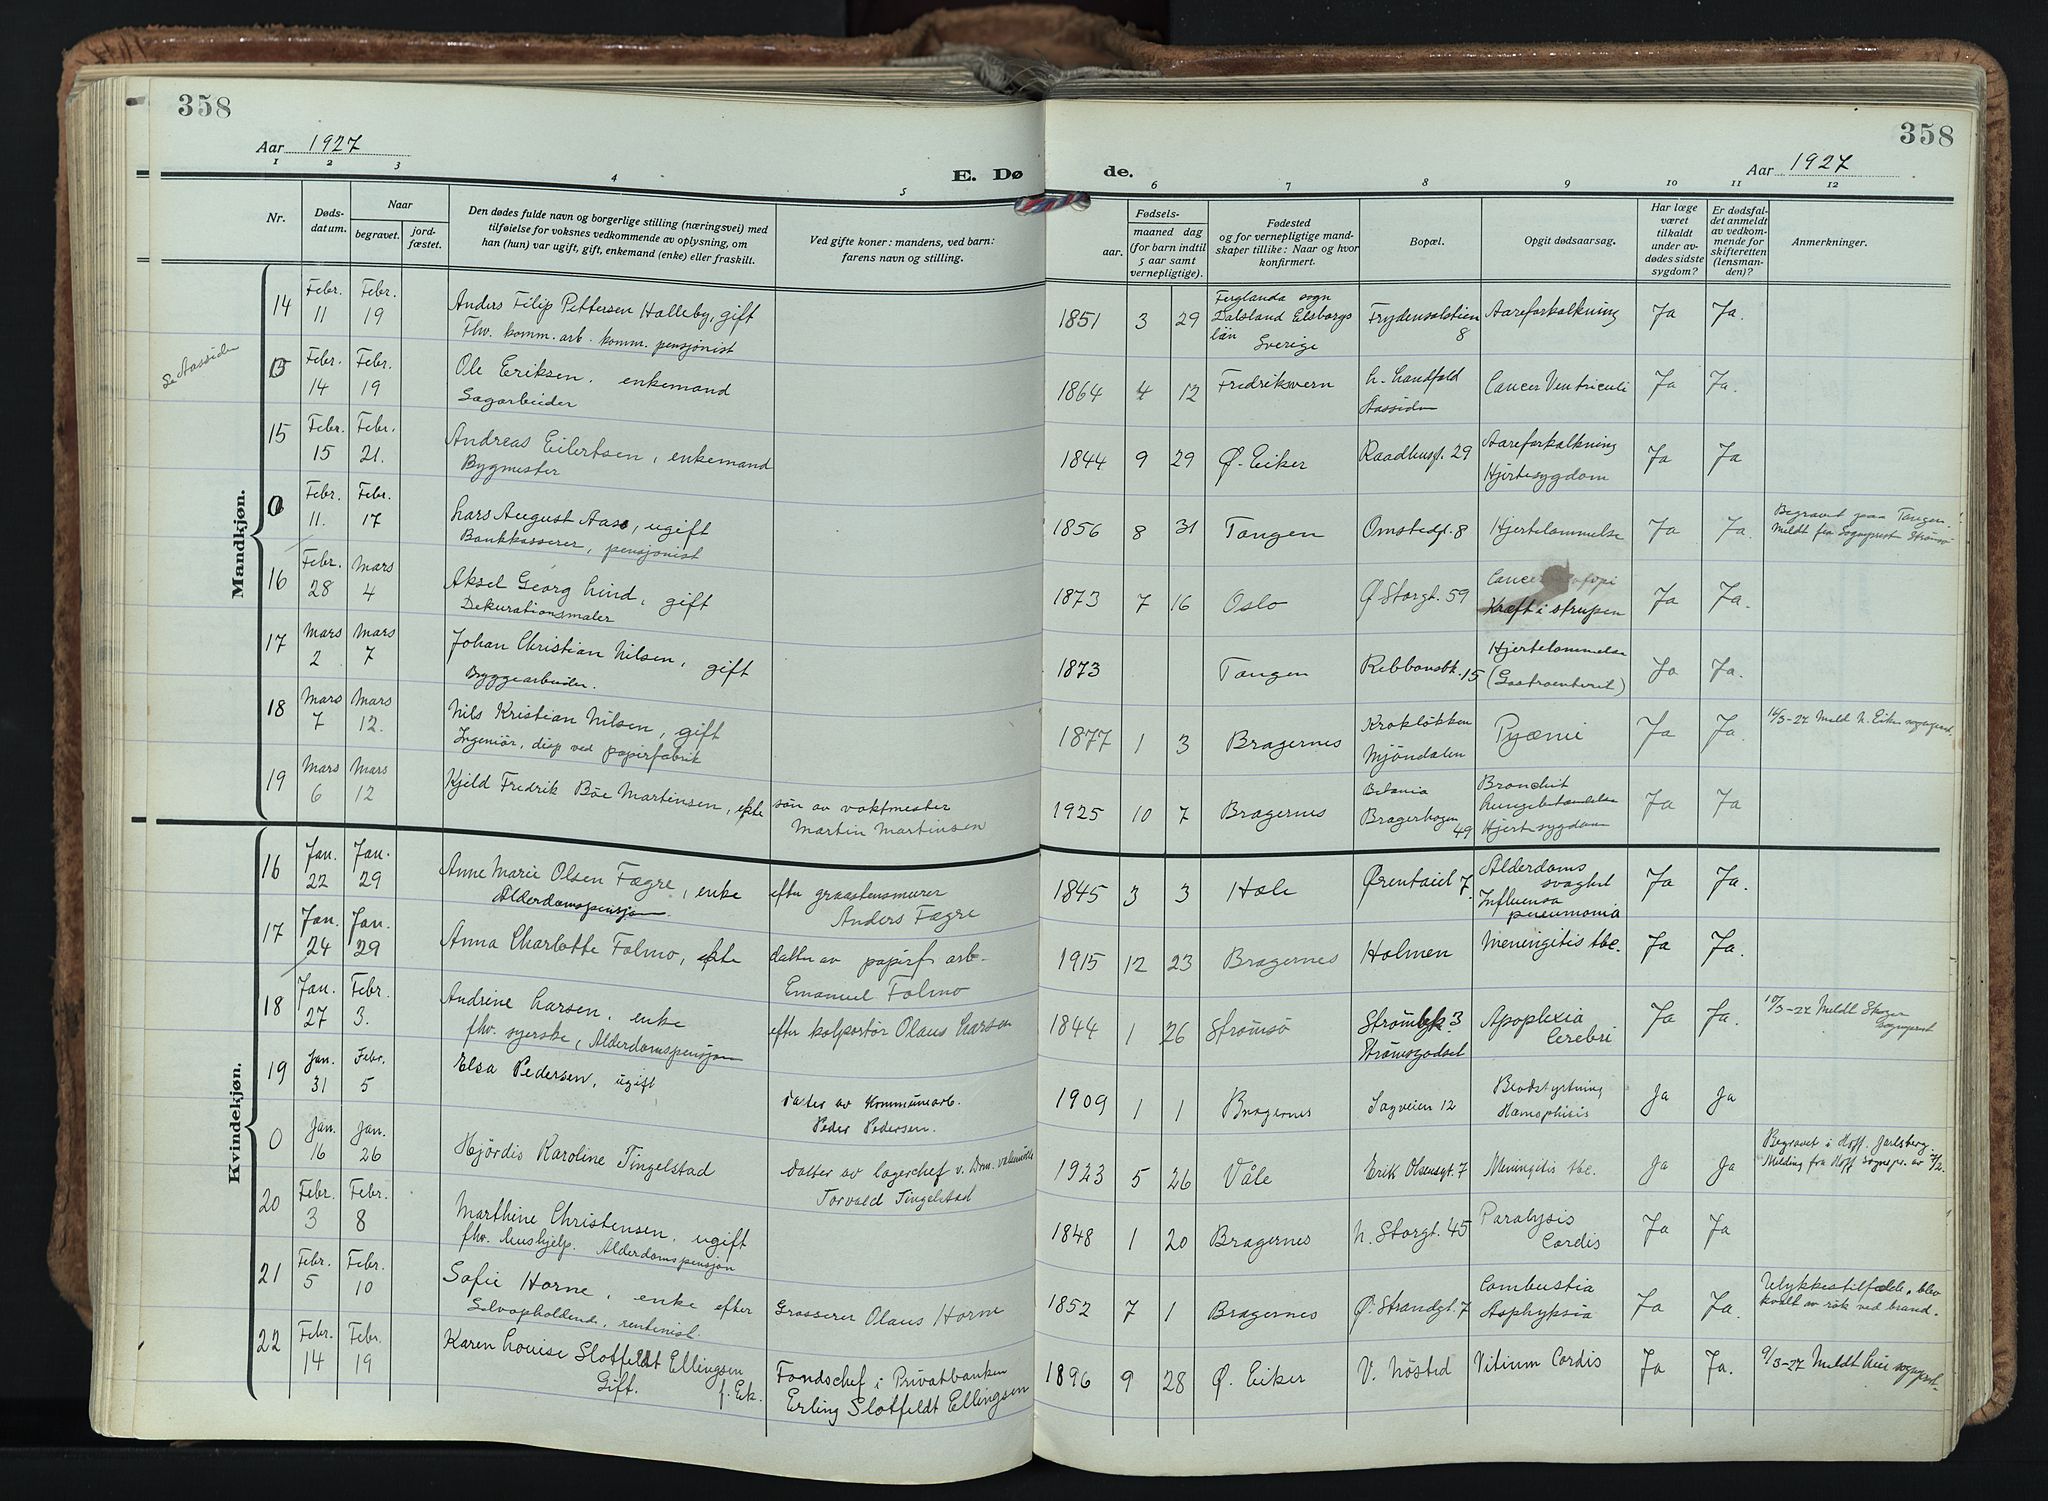 358
358
Aar 1927
Aar 1927
E. Dø
de.
1 2 3 4 5
6 7 8 9 10 11 12
Nr.
Døds-
datum.
Naar
begravet.
jord-
fæstet.
Den dødes fulde navn og borgerlige stilling (næringsvei) med
tilføielse for voksnes vedkommende av oplysning, om
han (hun) var ugift, gift, enkemand (enke) eller fraskilt.
Ved gifte koner: mandens, ved barn:
farens navn og stilling.
Fødsels-
aar.
maaned dag
(for barn indtil
5 aar samt
vernepligtige).
Fødested
og for vernepligtige mand-
skaper tillike: Naar og hvor
konfirmert.
Bopæl.
Opgit dødsaarsag.
Har læge
været
tilkaldt
under av-
dødes sidste
sygdom?
Er dødsfal-
det anmeldt
av vedkom-
mende for
skifteretten
(lensman-
den)?
Anmerkninger.
Mandkjøn.
14 Febr. 11 Febr. 19 Anders Filip Pettersen Halleby, gift
Fhv. komm. arb. komm. pensjonist
1851 3 29 Ferglanda sogn
Dalsland Elsborgs
län Sverige
Frydensalstien
8
Aareforkalkning Ja Ja.
Se Aassiden
0 Febr. 14 Febr. 19 Ole Eriksen, enkemand
Sagarbeider
1864 4 12 Fredriksvern
L. Landfald
Aassiden
Cancer Ventriculi Ja Ja.
15 Febr. 15 Febr. 21. Andreas Eilertsen, enkemand
Bygmester
1844 9 29 Ø. Eiker Raadhusgt. 29
Aareforkalkning
Hjertesygdom
Ja Ja
0 Febr. 11. Febr. 17 Lars August Aas, ugift
Bankkasserer, pensjonist
1856 8 31 Tangen Omstedgt. 8 Hjertelammelse Ja Ja.
Begravet paa Tangen.
Meldt fra Sogneprest Strømsø
16 Febr. 28 Mars 4 Aksel Georg Lind, gift
Dekurationsmaler
1873 7 16 Oslo Ø Storgt. 59
Cancer
Kræft i strupen
Ja Ja.
17 Mars 2 Mars 7 Johan Christian Nilsen, gift
Byggearbeider.
1873 Tangen Rebbansbk. 15
Hjertelammelse
(Gastroenterit)
Ja Ja.
18 Mars 7 Mars 12. Nils Kristian Nilsen, gift
Ingeniør, disp ved papirfabrik
1877 1 3 Bragernes
Krokløkken
Mjøndalen
Pyæmie Ja Ja.
16/3-27 Meldt N. Eiker sogneprest.
19 Mars 6 Mars 12 Kjeld Fredrik Bøe Martinsen, ekte
søn av vaktmester
Martin Martinsen
1925 10 7 Bragernes
Betania
Bragerhagen
49
Bronchit
Lungebetændelse
Hjertesygdom
Ja Ja
Kvindekjøn.
16 Jan. 22 Jan. 29 Anne Marie Olsen Fægre, enke
Alderdomspensjon.
efter graastensmurer
Anders Fægre
1845 3 3 Hole Ørentaiet 7.
Alderdoms
svaghet
Influensa
pneumonia
Ja Ja.
17 Jan. 24 Jan. 29 Anna Charlotte Folmo, ekte
datter av papirf arb-
Emanuel Folmo
1915 12 23 Bragernes Holmen Meningitis tbc. Ja Ja.
18 Jan. 27 Febr. 3. Andrine Larsen, enke
fhv. syerske, Alderdomspensjon
efter kolportør Olaus Larsen
1844 1 26 Strømsø
Strømbk 3
Strømsgodset
Apoplexia
Cerebri
Ja Ja.
10/3-27 Meldt Skoger
Sogneprest
19 Jan. 31 Febr. 5 Elsa Pedersen, ugift
datter av Kommunearb.
Peder Pedersen.
1909 1 1 Bragernes Sagveien 12
Blodstyrtning
Hæmophisis
Ja Ja
0 Jan. 16 Jan. 26 Hjørdis Karoline Tingelstad
Datter av lagerchef v. Drm. valsemølle
Torvald Tingelstad
1923 5 26 Våle Erik Olsensgt. 7 Meningitis tbc. Ja Ja
Begravet i Hoff. Jarlsberg.
Melding fra Hoff sognepr. av 7/2.
20 Febr. 3 Febr. 8 Marthine Christensen, ugift
fhv. hushjelp. Alderdomspensjon
1848 1 20 Bragernes N. Storgt. 45
Paralysis
Cordis
Ja Ja
21 Febr. 5 Febr. 10 Sofie Horne, enke efter
Selvopholdende, rentenist.
Grosserer Olaus Horne
1852 7 1 Bragernes Ø. Strandgt. 7
Combustia
Asphyksia
Ja Ja.
Ulykkestilfælde, blev
kvalt av røk ved brand.
22 Febr. 14 Febr. 19 Karen Louise Slotfeldt Ellingsen
Gift. f. Ek.
Fondschef i Privatbanken
Erling Slotfeldt Ellingsen
1896 9 28 Ø. Eiker V. Nøsted Vitium Cordis Ja Ja.
9/3-27 Meldt Lier sogneprest.